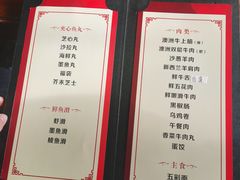 夹心鱼丸
芝心丸
沙拉丸
海鲜丸
墨鱼丸
福袋
芥末芝士
鲜鱼滑
虾滑
墨鱼滑
鳗鱼滑
肉类
澳洲牛上脑
澳洲双层牛肉
沙葱羊肉
新西兰羊肩肉
鲜牛舌
鲜五花肉
鲜嫩滑牛肉
黑椒肠
乌鸡卷
午餐肉
香菜牛肉丸
蛋饺
主食
五彩面